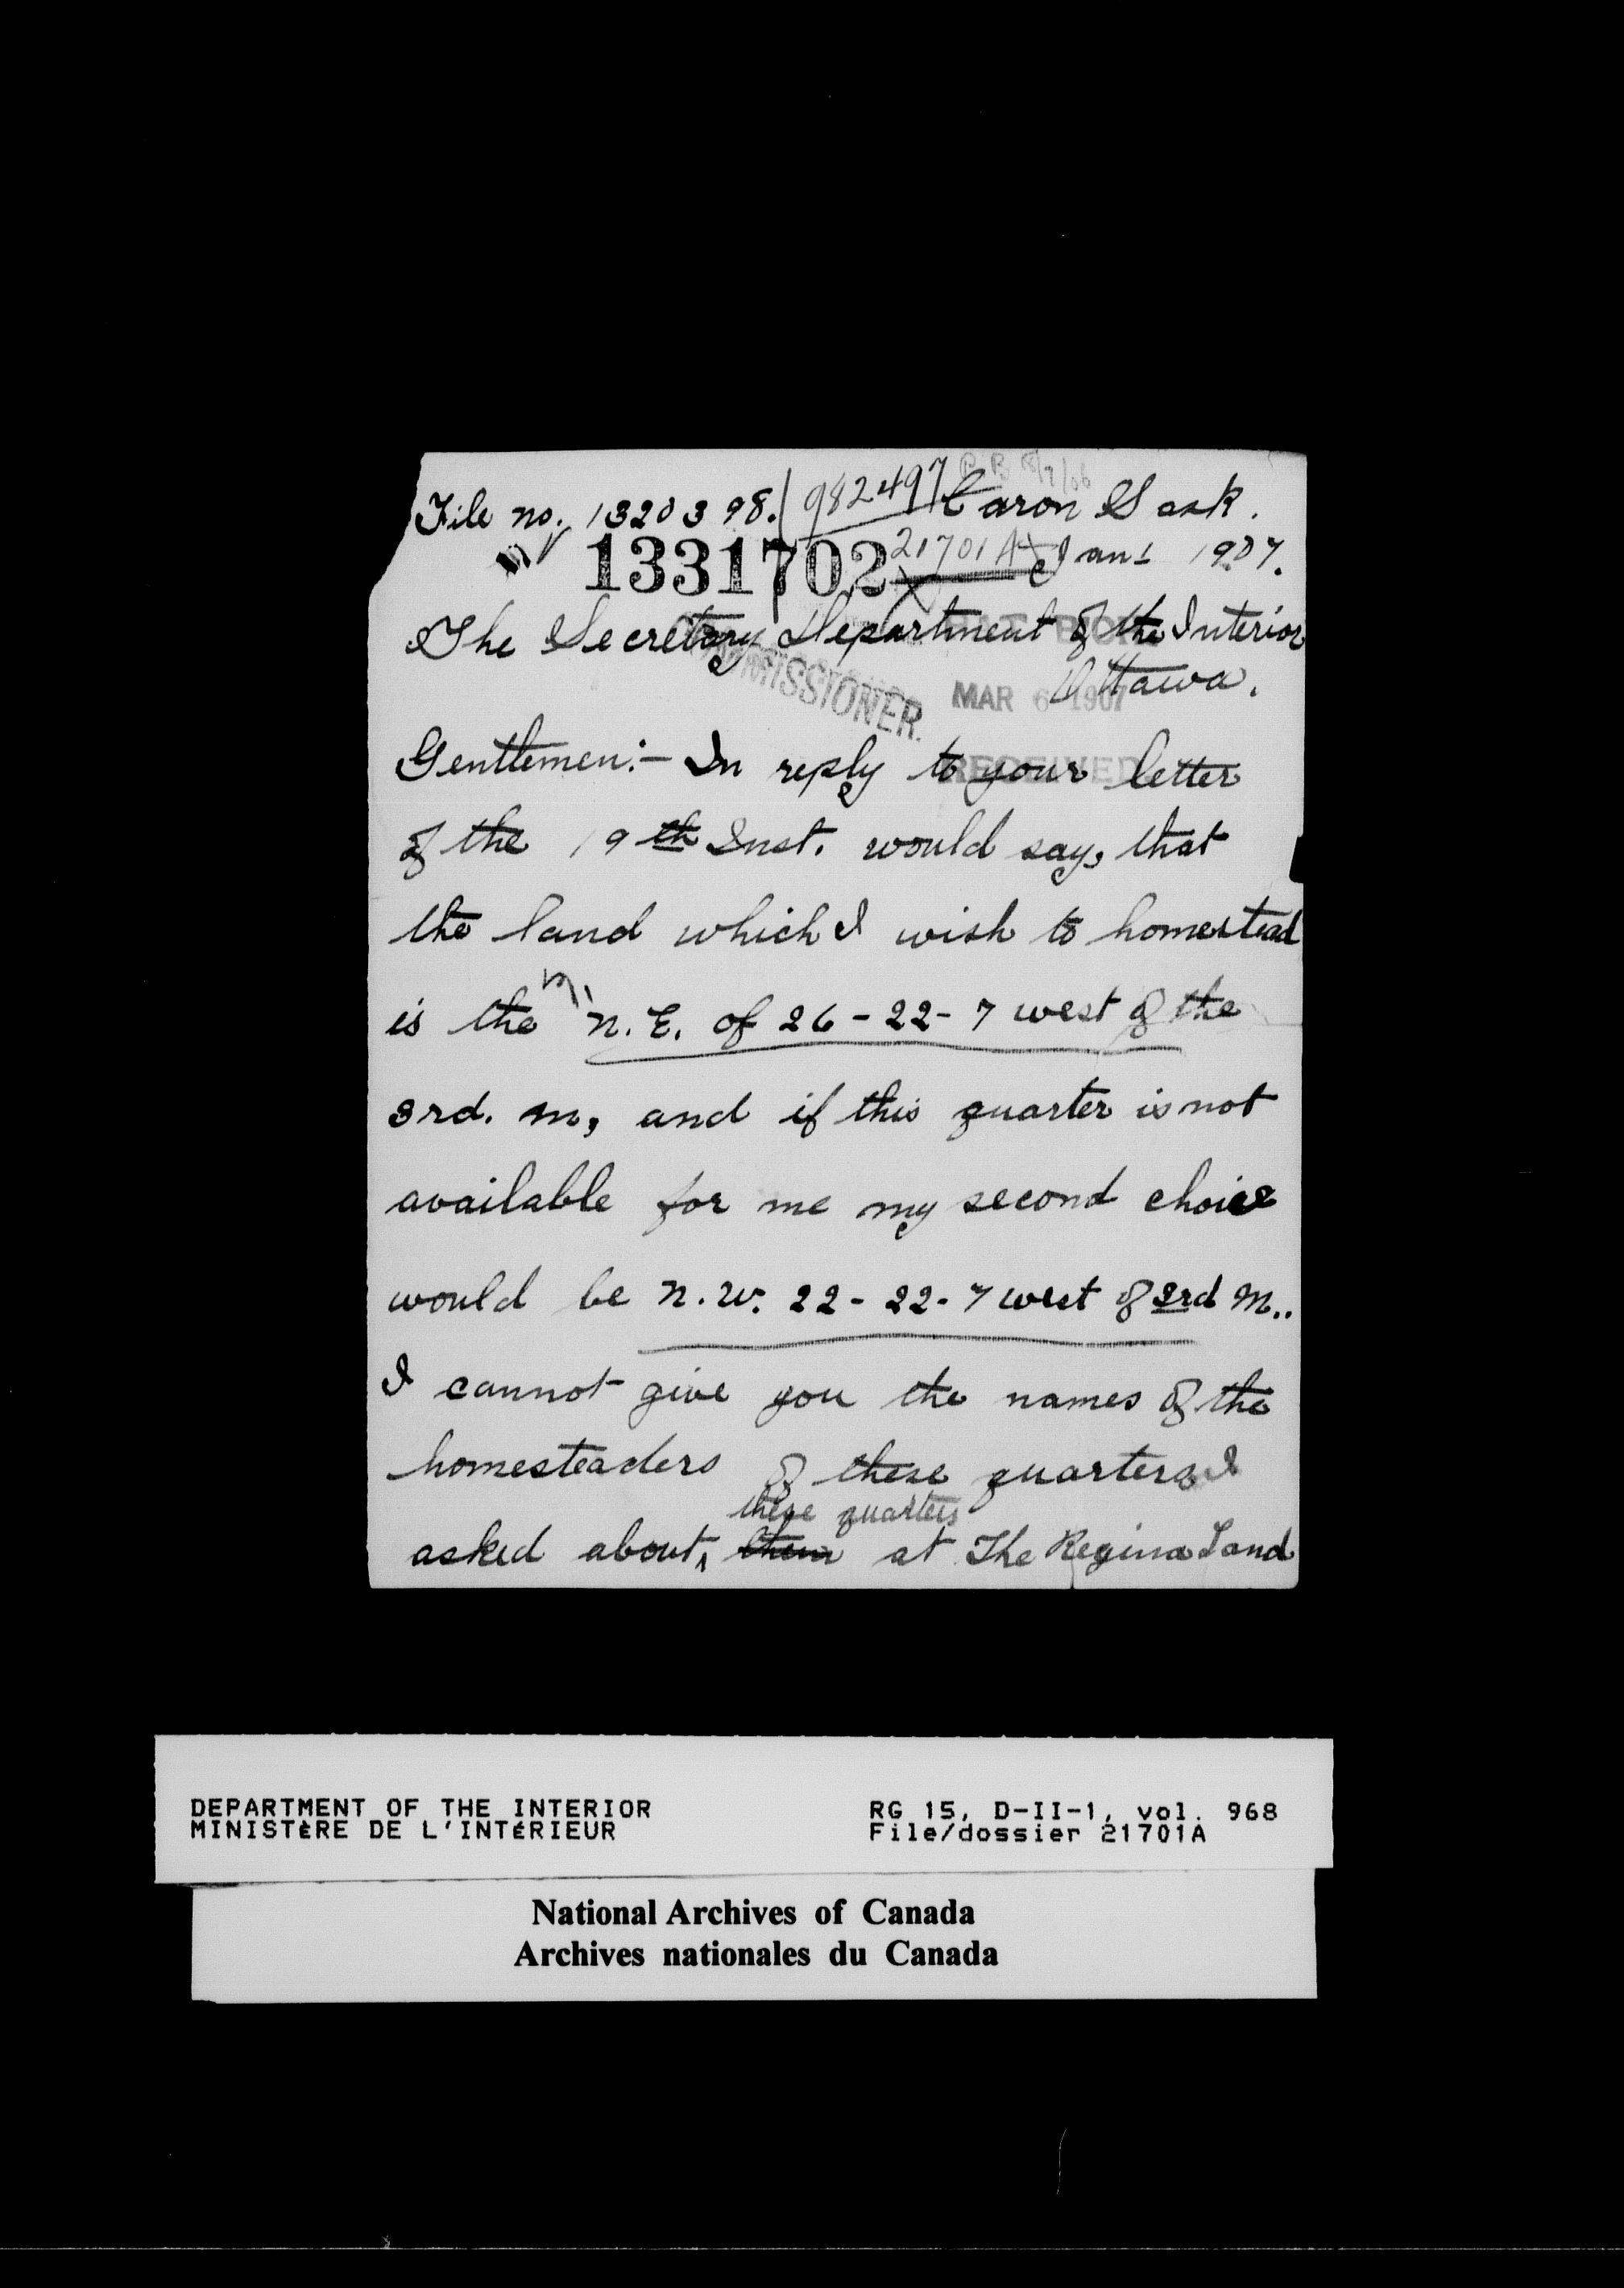 File no. 1320398. 982497 Caron Sask.
1331702 21701A Jan 1 1907.
The Secretary Department of the Interior
Ottawa.
COMMISSIONER.
MAR 6 1907
RECEIVED
Gentlemen:- In reply to your letter
of the 19th Inst. would say, that
the land which I wish to homestead
is the N.E. of 26-22-7 west of the
3rd. M, and if this quarter is not
available for me my second choice
would be N.W. 22-22-7 west of 3rd M..
I cannot give you the names of the
homesteaders of these quarters I
these quarters
asked about them at The Regina Land
DEPARTMENT OF THE INTERIOR
MINISTÈRE DE L'INTÉRIEUR
RG 15, D-II-1, vol. 968
File/dossier 21701A
National Archives of Canada
Archives nationales du Canada